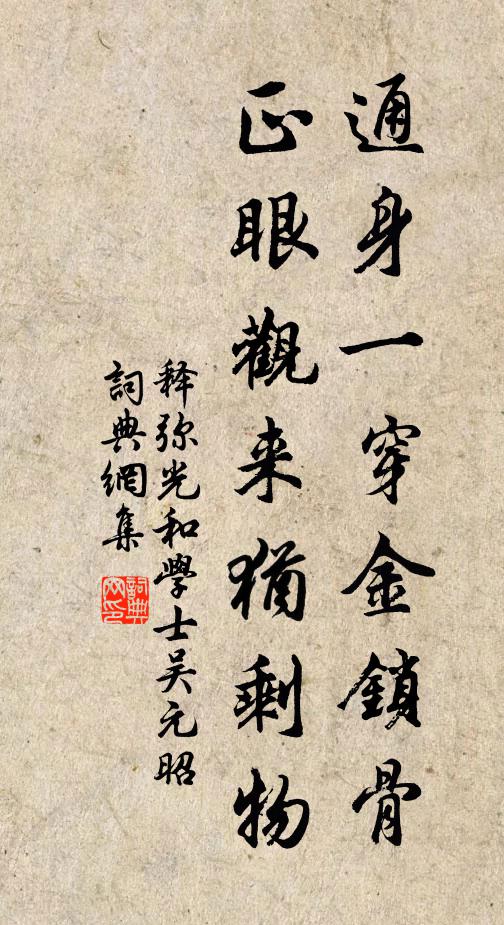 通身一穿金鎖骨
正眼觀来猶剩物
释弥光和學士吴元昭
詞典網集
詞典網印